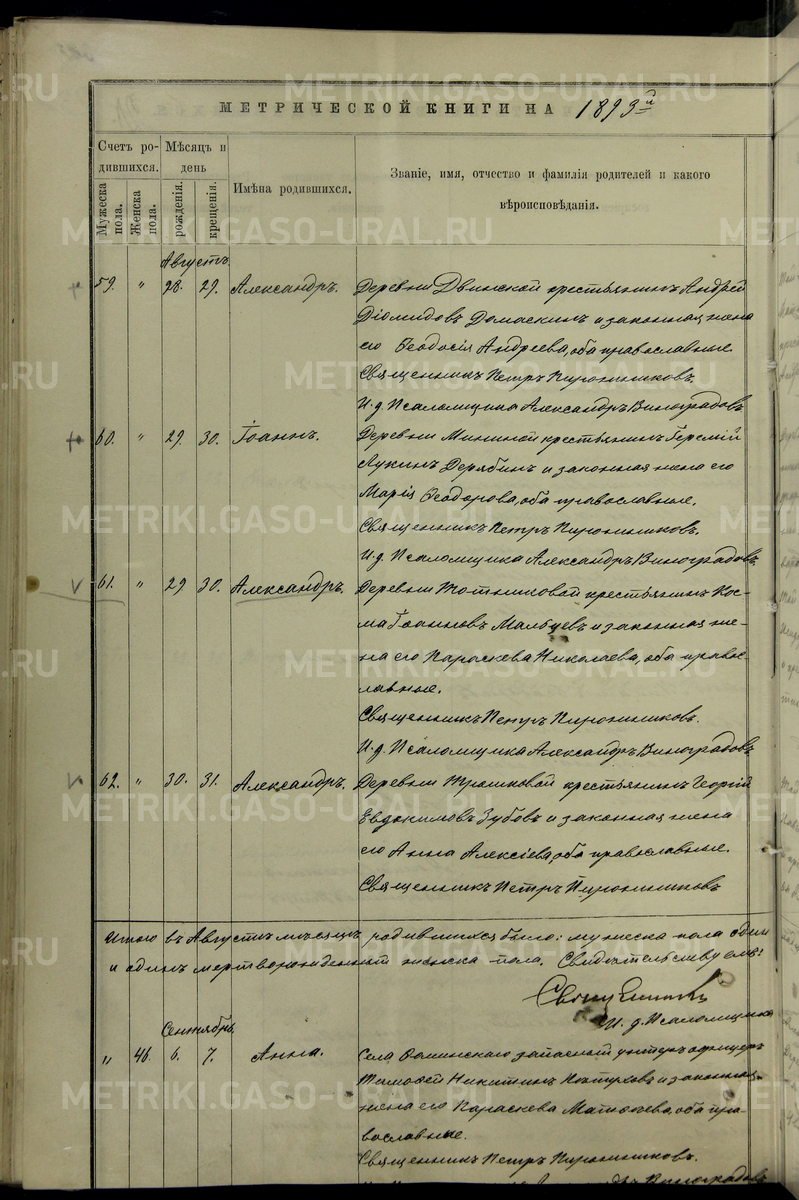 МЕТРИЧЕСКОЙ КНИГИ НА 1893й
Счетъ ро-
дившихся.
Мѣсяцъ и
день
Мужеска пола.
Женска пола.
рожденія.
крещенія.
Имѣна родившихся.
Званіе, имя, отчество и фамилія родителей и какого
вѣроисповѣданія.
Августъ.
59. " 28. 29. Александръ. Деревни Двинской крестьянинъ Андрей
Діомидовъ Домаскинъ и законная жена
его Ѳеодосія Андреева, оба православные.
Священникъ Петръ Пирожниковъ.
И.д. Псаломщика Александръ Виноградовъ
60. " 29. 30. Іоаннъ. Деревни Мининой крестьянинъ Іеремій
Лукинъ Дерябинъ и законная жена его
Марія Ѳеодорова, оба православные.
Священникъ Петръ Пирожниковъ.
И.д. Псаломщика Александръ Виноградовъ.
61. " 29 30. Александръ. Деревни крестьянинъ Кос-
ма Іоанновъ Мальцевъ и законная же-
на его Параскева Николаева, оба право-
славные.
Священникъ Петръ Пирожниковъ.
И.д. Псаломщика Александръ Виноградовъ
62. " 30. 31. Александръ. Деревни Трошковой крестьянинъ Георгій
Евдокимовъ Зубовъ и законная жена
его Анна Алексіева, оба православные.
Священникъ Петръ Пирожниковъ
Итого въ Августѣ мѣсяцѣ родившихся было: мужеска пола
и одинъ мертворожденный женска пола. Свидѣтельствуемъ:
И.д. Псаломщика
Сентябрь.
" 46. 6. 7. Анна. Села запасный унтеръ офицеръ
Тимоѳей Никитинъ и законная
жена его Параскева Матѳеева, оба пра-
вославные.
Священникъ Петръ Пирожниковъ.
Виноградовъ
METRIKI.GASO-URAL.RU